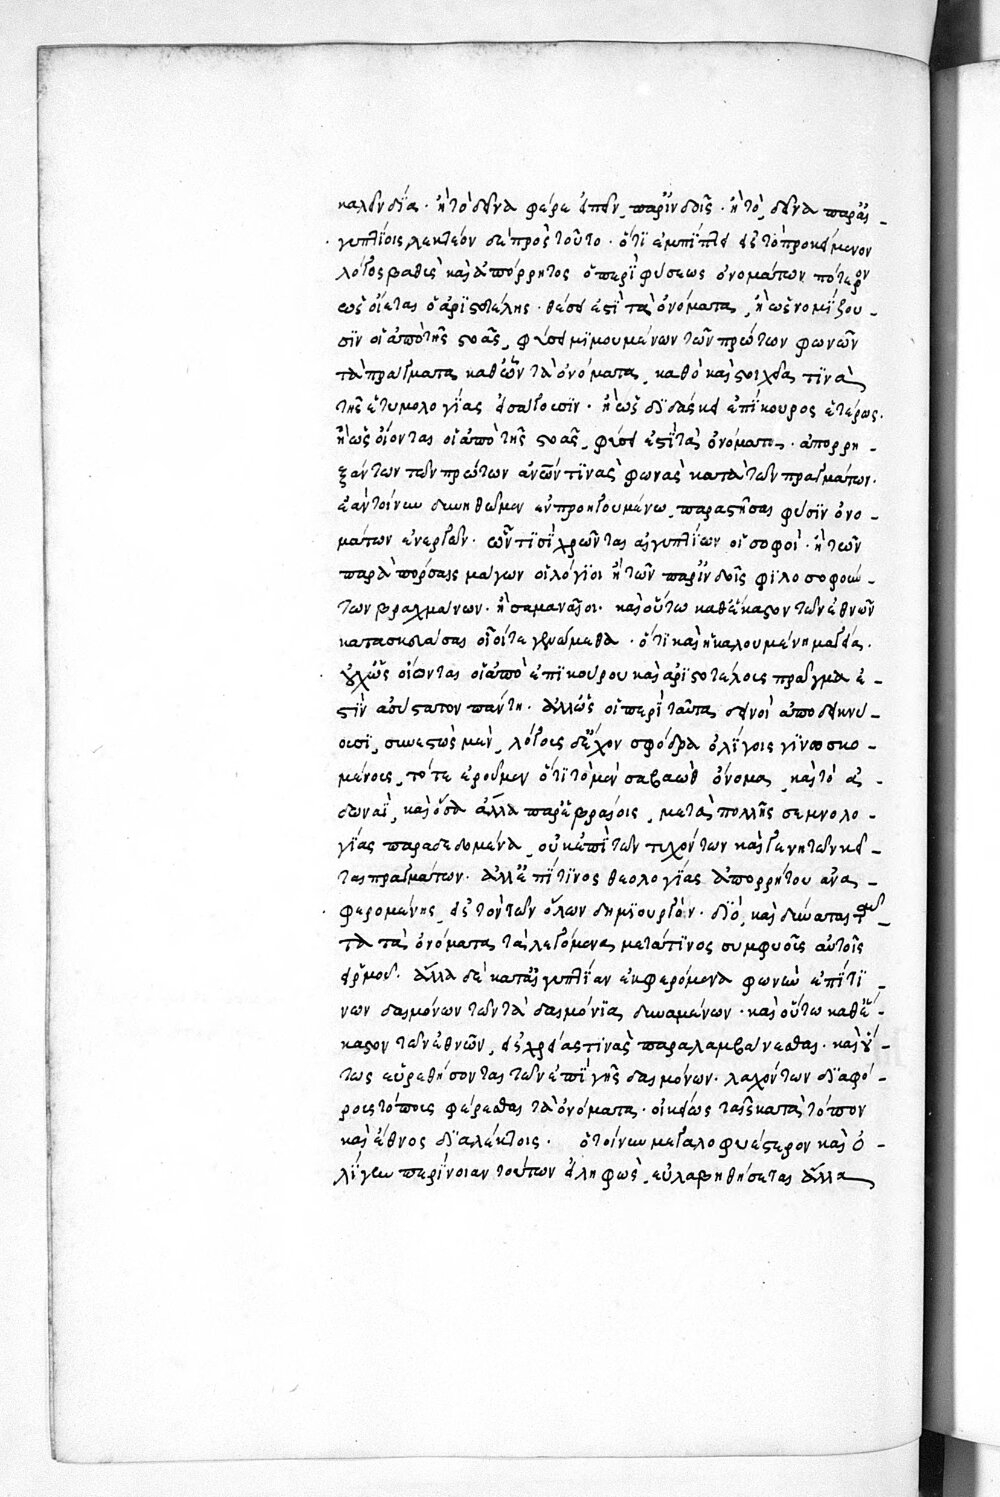 καλεῖν δία· ἢ τὸ δεῖνα φέρε εἰπεῖν, παρ' ἰνδοῖς· ἢ τὸ δεῖνα παρ' αἰ-
γυπτίοις, λεκτέον δὲ πρὸς τοῦτο· ὅτι ἐμπίπτει εἰς τὸ προκείμενον
λόγος βαθὺς καὶ ἀπόρρητος ὁ περὶ φύσεως ὀνομάτων πότερον
ὡς οἴεται ὁ ἀριστοτέλης· θέσει ἐστὶ τὰ ὀνόματα, ἢ ὡς νομίζου-
σιν οἱ ἀπὸ τῆς στοᾶς, φύσει μιμουμένων τῶν πρώτων φωνῶν
τὰ πράγματα καθ' ὧν τὰ ὀνόματα, καθὸ καὶ στοιχεῖα τινὰ
τῆς ἐτυμολογίας εἰσάγουσιν· ἢ ὡς διδάσκει ἐπίκουρος ἑτέρως·
ἢ ὡς οἴονται οἱ ἀπὸ τῆς στοᾶς, φύσει ἐστὶ τὰ ὀνόματα· ἀπορρη-
ξάντων τῶν πρώτων ἀνῶν τινὰς φωνὰς κατὰ τῶν πραγμάτων·
ἐὰν τοίνυν δυνηθῶμεν ἐν προηγουμένω, παραστῆσαι φύσιν ὀνο-
μάτων ἐνεργῶν· ὧν τισὶ χρῶνται αἰγυπτίων οἱ σοφοὶ· ἢ τῶν
παρὰ πέρσαις μάγων οἱ λόγιοι ἢ τῶν παρ' ἰνδοῖς φιλοσοφούν-
των βραχμάνων· ἢ σαμαναῖοι· καὶ οὕτω καθ' ἕκαστον τῶν ἐθνῶν
κατασκευάσαι οἷοί τε γενώμεθα· ὅτι καὶ ἡ καλουμένη μαγεία·
οὐχ ὡς οἴονται οἱ ἀπὸ ἐπικούρου καὶ ἀριστοτέλους πράγμα ἐ-
στὶν ἀσύστατον πάντη· ἀλλ' ὡς οἱ περὶ ταῦτα δεινοὶ ἀποδεικνύ-
ουσι, συνεστὼς μὲν, λόγους δ' ἔχον σφόδρα ὀλίγοις γινωσκο-
μένους, τότε ἐροῦμεν ὅτι τὸ μὲν σαβαὼθ ὄνομα, καὶ τὸ ἀ-
δωναῒ, καὶ ὅσα ἄλλα παρ' ἑβραίοις, μετὰ πολλῆς σεμνολο-
γίας παραδεδομένα, οὐκ ἐπὶ τῶν τυχόντων καὶ γενητῶν κεῖ-
ται πραγμάτων· ἀλλ' ἐπί τινος θεολογίας ἀπορρήτου ἀνα-
φερομένης, εἰς τὸν τῶν ὅλων δημιουργόν· διὸ, καὶ δύναται
τα τὰ ὀνόματα τὰ λεγόμενα μετά τινος συμφυοῦς αὐτοῖς
εἱρμοῦ· ἄλλα δὲ κατ' αἰγυπτίαν ἐκφερόμενα φωνὴν ἐπί τι-
νων δαιμόνων τῶν τὰ δαιμόνια, δυναμένων· καὶ οὕτω καθ' ἕ-
καστον τῶν ἐθνῶν, εἰς χρείας τινὰς παραλαμβάνεσθαι· καὶ οὕ-
τως εὑρεθήσονται τῶν ἐπὶ γῆς δαιμόνων· λαχόντων διαφό-
ρους τόπους φέρεσθαι τὰ ὀνόματα· οἰκείως ταῖς κατὰ τόπον
καὶ ἔθνος διαλέκτοις· ὁ τοίνυν μεγαλοφυέστερον κἂν ὀ-
λίγην περίνοιαν τούτων εἰληφὼς, εὐλαβηθήσεται ἄλλα